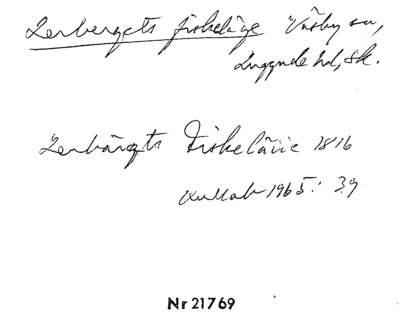 Lerbergets fiskeläge Väsby sn,
Luggude hd, Sk.
Lerbärgts Fiskeläne 1816
Kullab 1965: 39
Nr 21769